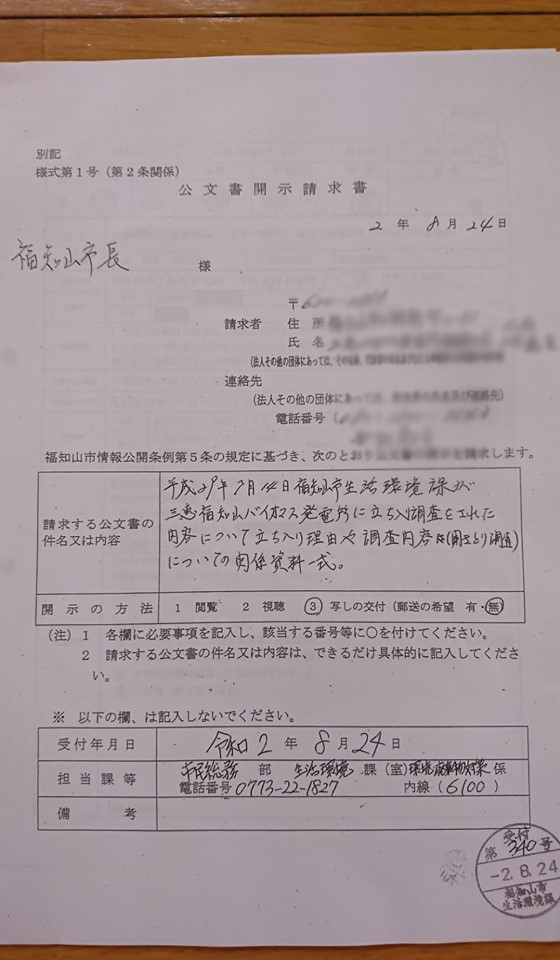 別記
様式第1号（第2条関係）
公文書開示請求書
2 年 8 月 24 日
福知山市長 様
〒
請求者 住 所
氏 名
(法人その他の団体にあっては、
連絡先
(法人その他の団体にあっては、
電話番号
福知山市情報公開条例第5条の規定に基づき、次のとおり公文書の開示を請求します。
請求する公文書の件名又は内容
平成29年7月14日福知山市生活環境課が
三恵福知山バイオマス発電所に立ち入調査をされた
内容について立ち入り理由や調査内容(聞きとり調査)
についての関係資料一式。
開示の方法 1 閲覧 2 視聴 ③ 写しの交付（郵送の希望 有・無）
（注） 1 各欄に必要事項を記入し、該当する番号等に○を付けてください。
2 請求する公文書の件名又は内容は、できるだけ具体的に記入してくださ
い。
※ 以下の欄、は記入しないでください。
受付年月日 令和 2 年 8 月 24 日
担当課等 市民総務 部 生活環境 課（室）環境廃棄物対策 係
電話番号 0773-22-1827 内線（6100）
備 考
受付
第 340 号
-2.8.24
福知山市
生活環境課